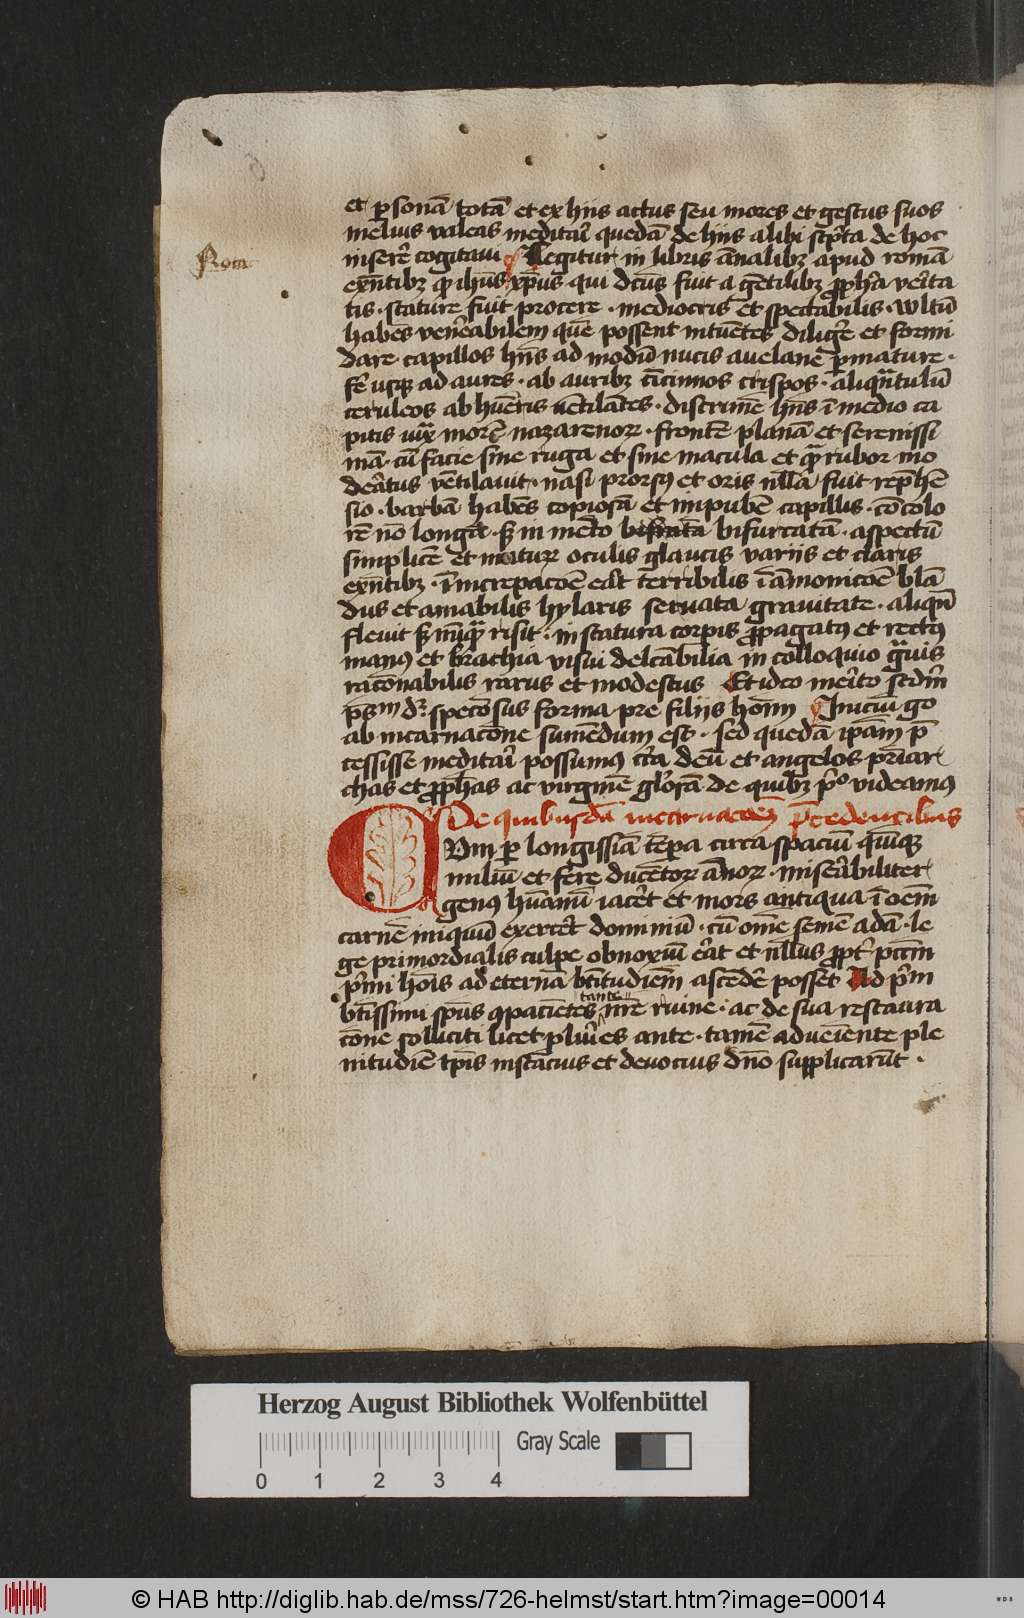 et ꝑsonā totā et ex hijs actus seu mores et gestus suos
melius valeas meditaī quedā de hijs alibi scpͥta de hoc
inserē cogitavi Legitur in libris ānalibꝫ apud romā
Nota
exn̄tibꝫ ꝙ ihūs xp̄us qui dc̄us fuit a gētilibꝫ ꝓpha veͥta
tis · stature fuit procere · mediocris et spectabilis · wltū
habēs venēabilem quē possent intuētes diligē et formi
dare capillos hn̄s ad modū nucis avelane p̄mature ·
fē usqꝫ ad aures · ab auribꝫ cīcinnos crispos · aliqͣntulū
ceruleos ab hūeris vētilātes · discrimē hn̄s ī medio ca
pitis iuxͣ morē nazarenoꝝ · frontē planā et serenissi
mā · cū facie sine ruga et sine macula et qͣ rubor mo
deātus vētilavit · nasi prorsꝰ et oris nlla fuit rep̄hē
sio · barbā habēs copiosā et impubē capillis · cōcolo
rē nō longā · sꝫ in mēto bifurcatā · aspectū
simplicē et maturꝫ oculis glaucis variis et claris
exn̄tibꝫ · ī increpacōe erat terribilis ī āmonicōe blā
dus et amabilis hylaris servata gravitate · aliqn̄
flevit sꝫ nūqͣ risit · in statura corpis ꝓpagatꝰ et rectꝰ
manꝰ et brachia visui delcābilia in colloquio gͣuis
racōnabilis rarus et modestus Et idco meͥto scdm̄
ps̄m dꝛ specōsus forma pre filijs hoīm Iniciū go
ab incarnacōne sumēdum est · sed quedā ipām p̄
cessisse meditaī possumꝰ cͥca deū et angelos pr̄iar
chas et ꝓphas ac virginē glōsā de quibꝫ pͥo videamꝰ
De quibusdā incarnacōeꝫ p̄cedentibus
CVm ꝑ longissiā tēpa circa spaciū quīqꝫ
miliū et fere ducētoꝝ ānoꝝ · miseābiliter
genꝰ hūanū iacēt et mors antiqua ī oēm
carnē iniquū exercēt dominiū · cū ome semē adā · le
ge primordialis culpe obnoxiū eāt et nllus ꝓpt pccm̄
pͥmi hoīs ad eternā btītudīem ascēdē posset Ad pͥm
tante
btīssimi spūs ꝯpacientes nr̄e ruine · ac de sua restaura
cōne solliciti licet plūies ante · tamē adveīente ple
nitudīe tp̄is instācius et devocius dn̄o supplicarūt ·
Herzog August Bibliothek Wolfenbüttel
Gray Scale
0 1 2 3 4
© HAB http://diglib.hab.de/mss/726-helmst/start.htm?image=00014